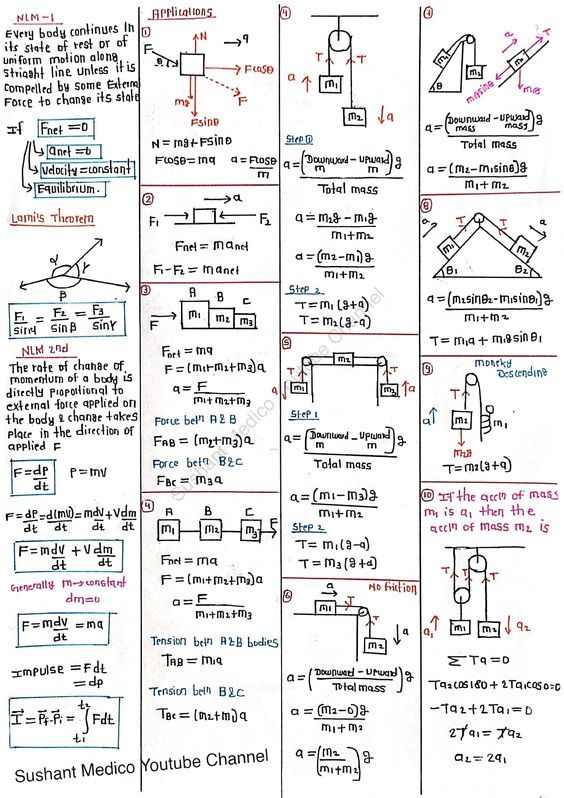 NLM-1
Every body continues in
its state of rest or of
uniform motion along
Straight line unless it is
compelled by some External
Force to change its state
If Fnet = 0
anet = 0
Velocity = constant
Equilibrium.
Lami's Theorem
α γ
β
F1/sinα = F2/sinβ = F3/sinγ
NLM 2nd
The rate of change of
momentum of a body is
directly proportional to
external force applied on
the body & change takes
place in the direction of
applied F
F = dP/dt P = mv
F = dP/dt = d(mv)/dt = mdv/dt + Vdm/dt
F = mdv/dt + Vdm/dt
Generally m → constant
dm = 0
F = mdv/dt = ma
Impulse = Fdt
= dp
I = Pf - Pi = ∫ Fdt
t2
t1
Applications
①
N a
F θ Fcosθ
mg F
Fsinθ
N = mg + Fsinθ
Fcosθ = ma a = Fcosθ/m
②
a
F1 F2
Fnet = manet
F1 - F2 = manet
③
A B C
F m1 m2 m3
Fnet = ma
F = (m1+m2+m3)a
a = F/(m1+m2+m3)
Force betn A & B
FAB = (m2+m3)a
Force betn B & C
FBC = m3a
④
A B C
m1 m2 m3 F
Fnet = ma
F = (m1+m2+m3)a
a = F/(m1+m2+m3)
Tension betn A & B bodies
TAB = m1a
Tension betn B & C
TBC = (m2+m1)a
④
T T
a m1
m2 a
Step ①
a = (Downward m - Upward m / Total mass) g
a = m2g - m1g / m1+m2
a = (m2-m1)g / m1+m2
Step 2
T = m1(g+a)
T = m2(g-a)
⑤
m2
T T
a m1 m3 a
Step 1
a = (Downward m - Upward m / Total mass) g
a = (m1-m3)g / m1+m2
Step 2
T = m1(g-a)
T = m3(g+a)
⑥
No friction
a
m1 T
T
m2 a
a = (Downward - Upward / Total mass) g
a = (m2-0)g / m1+m2
a = (m2 / m1+m2) g
⑦
a T
T m1
θ m2 m1gsinθ m1g
a = (Downward mass - Upward mass / Total mass) g
a = (m2 - m1sinθ)g / m1+m2
⑧
a T T a
m1 m2
θ1 θ2
a = (m2sinθ2 - m1sinθ1)g / m1+m2
T = m1a + m1gsinθ1
⑨ moneky
Descending
T
a m2 m1
m2g
T = m2(g+a)
⑩ If the accln of mass
m1 is a1 then the
accln of mass m2 is
T T T
a1 m1 m2 a2
ΣTa = 0
Ta2cos180 + 2Ta1cos0 = 0
-Ta2 + 2Ta1 = 0
2Ta1 = Ta2
a2 = 2a1
Sushant Medico Youtube Channel
Sushant Medico Youtube Channel